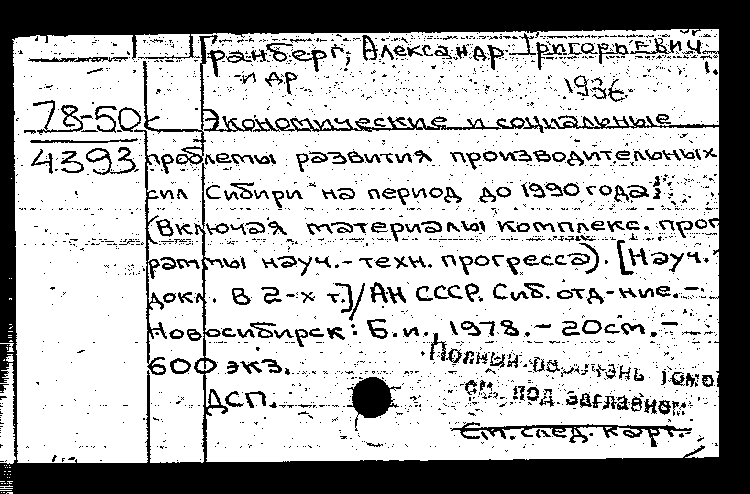 Гранберг, Александр Григорьевич
и др
1936
78-50с Экономические и социальные
4393 проблемы развития производительных
сил Сибири на период до 1990 года:
(Включая материалы комплекс. прог
раммы науч.-техн. прогресса). [Науч.
докл. В 2-х т.]/АН СССР. Сиб. отд-ние.-
Новосибирск: Б.и., 1978.- 20см.-
600 экз.
Полный перечень томов
ДСП.
см. под заглавием
См. след. карт.